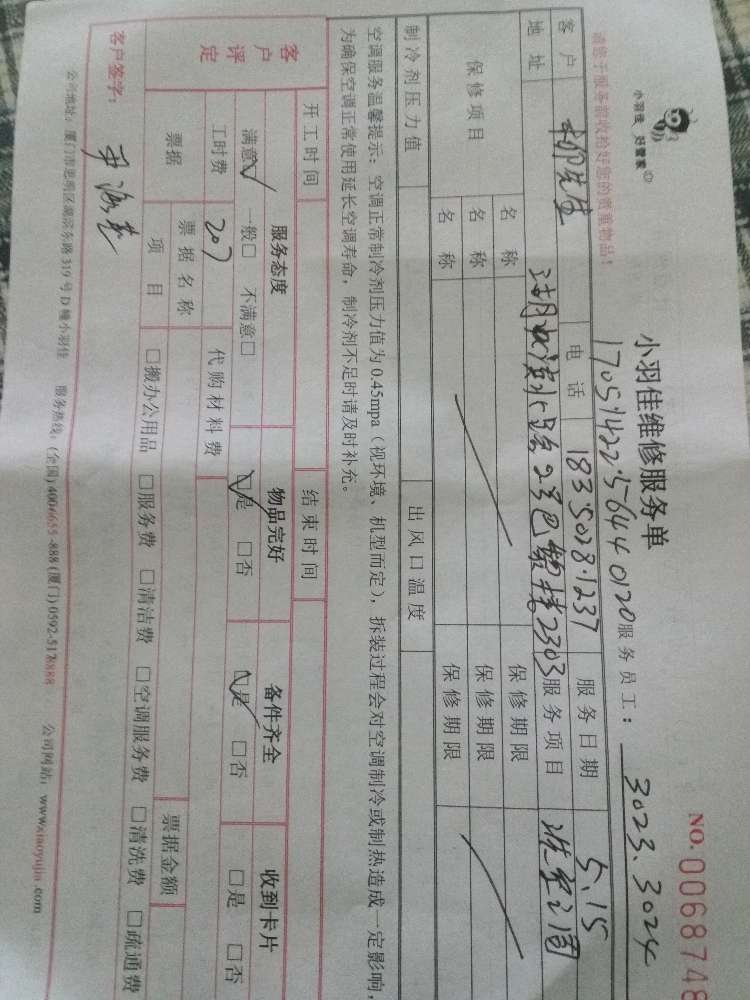 小羽佳 好管家
小羽佳维修服务单
NO. 0068748
170514225644 0120 服务员工：3023、3024
请您于服务前收给好您的贵重物品！
客户 柳先生 电话 1835028·1237 服务日期 5.15
地址 2303 服务项目
保修项目 名称 保修期限
名称 保修期限
名称 保修期限
制冷剂压力值 出风口温度
空调服务温馨提示：空调正常制冷剂压力值为0.45mpa（视环境、机型而定），拆装过程会对空调制冷或制热造成一定影响，
为确保空调正常使用延长空调寿命，制冷剂不足时请及时补充。
开工时间 结束时间
客户评定 服务态度 物品完好 备件齐全 收到卡片
满意☑ 一般□ 不满意□ ☑是 □否 ☑是 □否 □是 □否
工时费 207 代购材料费
票据 票据名称 票据金额
项目 □搬办公用品 □服务费 □清洁费 □空调服务费 □清洗费 □疏通费
客户签字：
公司地址：厦门市思明区湖滨东路319号D幢小羽佳 服务热线：(全国) 4006655-888 (厦门) 0592-5178888 公司网站：www.xiaoyujia.com